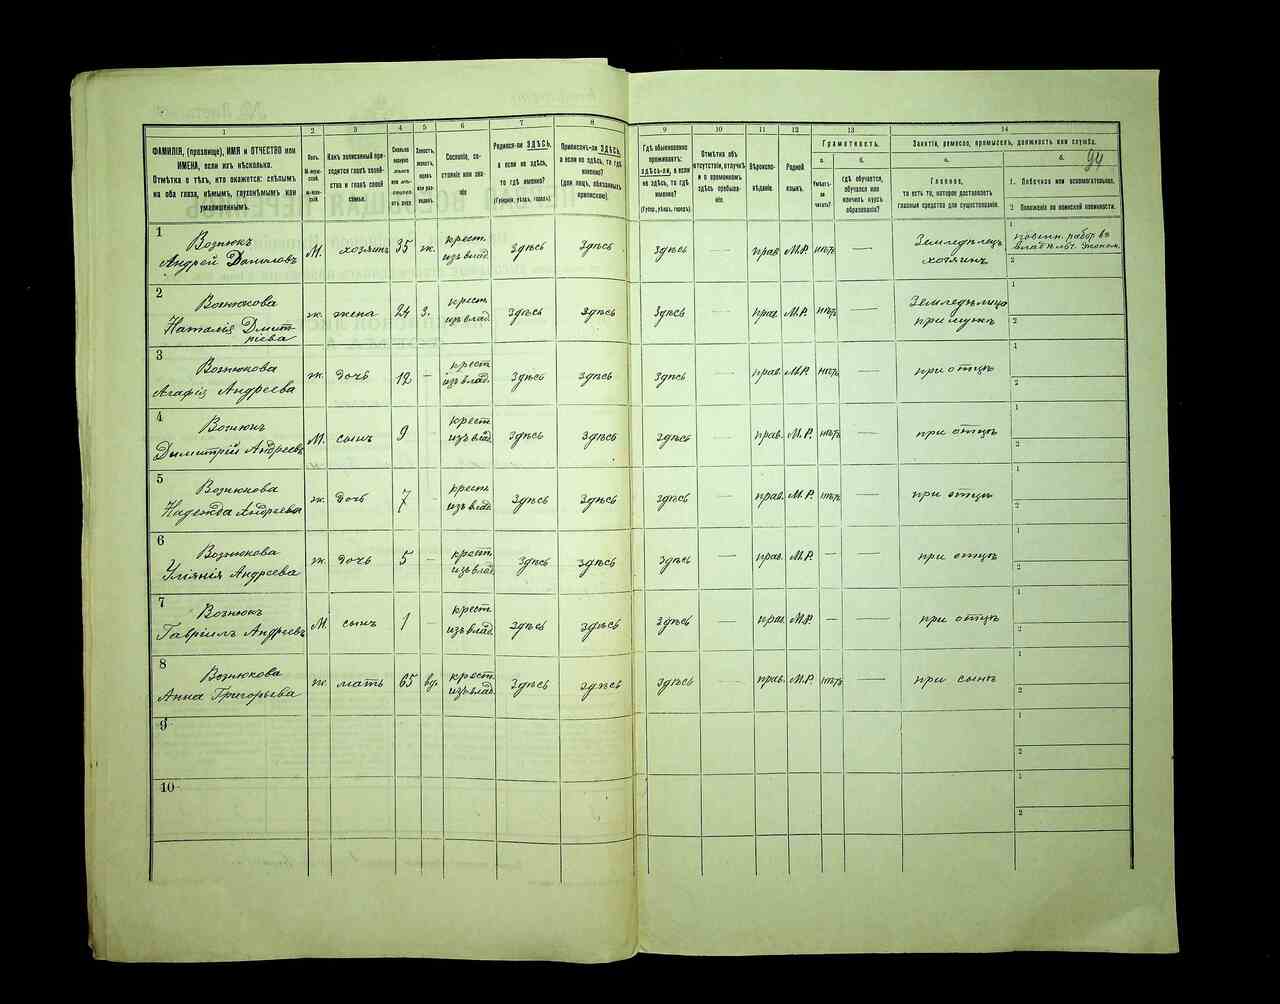 94
1
2
3
4
5
6
7
8
9
10
11
12
13
14
ФАМИЛІЯ, (прозвище), ИМЯ и ОТЧЕСТВО или
ИМЕНА, если ихъ нѣсколько.
Отмѣтка о тѣхъ, кто окажется: слѣпымъ
на оба глаза, нѣмымъ, глухонѣмымъ или
умалишеннымъ.
Полъ.
М-мужской.
Ж-женскій.
Какъ записанный приходится
главѣ хозяйства
и главѣ своей
семьи.
Сколько
Сословіе, состояніе
или званіе
Родился-ли ЗДѢСЬ,
а если не здѣсь,
то гдѣ именно?
(Губернія, уѣздъ, городъ).
Приписанъ-ли ЗДѢСЬ,
а если не здѣсь, то гдѣ
именно?
(Для лицъ, обязанныхъ
припискою).
Гдѣ обыкновенно
проживаетъ:
здѣсь-ли, а если
не здѣсь, то гдѣ
именно?
(Губер., уѣздъ, городъ).
Отмѣтка объ
отсутствіи, отлучкѣ
и о временномъ
здѣсь пребываніи.
Вѣроисповѣданіе.
Родной
языкъ.
Грамотность.
а.
б.
Умѣетъ-ли
читать?
гдѣ обучается,
обучался или
кончилъ курсъ
образованія?
Занятіе, ремесло, промыселъ, должность или служба.
а.
б.
Главное,
то есть то, которое доставляетъ
главныя средства для существованія.
1. Побочное или вспомогательное.
2. Положеніе по воинской повинности.
1
Вознюкъ
Андрей Даниловъ
М. хозяинъ 35 ж. крест. изъ влад. здѣсь здѣсь здѣсь — прав. М.Р. нѣтъ —
Земледѣлецъ
хозяинъ
1
2
2
Вознюкова
Наталія Дмитріева
ж. жена 24 з. крест. изъ влад. здѣсь здѣсь здѣсь — прав. М.Р. нѣтъ —
Земледѣлица
при мужѣ
1
2
3
Вознюкова
Агафія Андреева
ж. дочь 12 — крест. изъ влад. здѣсь здѣсь здѣсь — прав. М.Р. нѣтъ — при отцѣ
1
2
4
Вознюкъ
Димитрій Андреевъ
М. сынъ 9 крест. изъ влад. здѣсь здѣсь здѣсь — прав. М.Р. нѣтъ — при отцѣ
1
2
5
Вознюкова
Надежда Андреева
ж. дочь 7 крест. изъ влад. здѣсь здѣсь здѣсь — прав. М.Р. нѣтъ — при отцѣ
1
2
6
Вознюкова
Уліянія Андреева
ж. дочь 5 — крест. изъ влад. здѣсь здѣсь здѣсь — прав. М.Р. — — при отцѣ
1
2
7
Вознюкъ
Гавріилъ Андреевъ
М. сынъ 1 — крест. изъ влад. здѣсь здѣсь здѣсь — прав. М.Р. — — при отцѣ
1
2
8
Вознюкова
Анна Григорьева
ж. мать 65 вд. крест. изъ влад. здѣсь здѣсь здѣсь — прав. М.Р. нѣтъ — при сынѣ
1
2
9
1
2
10
1
2